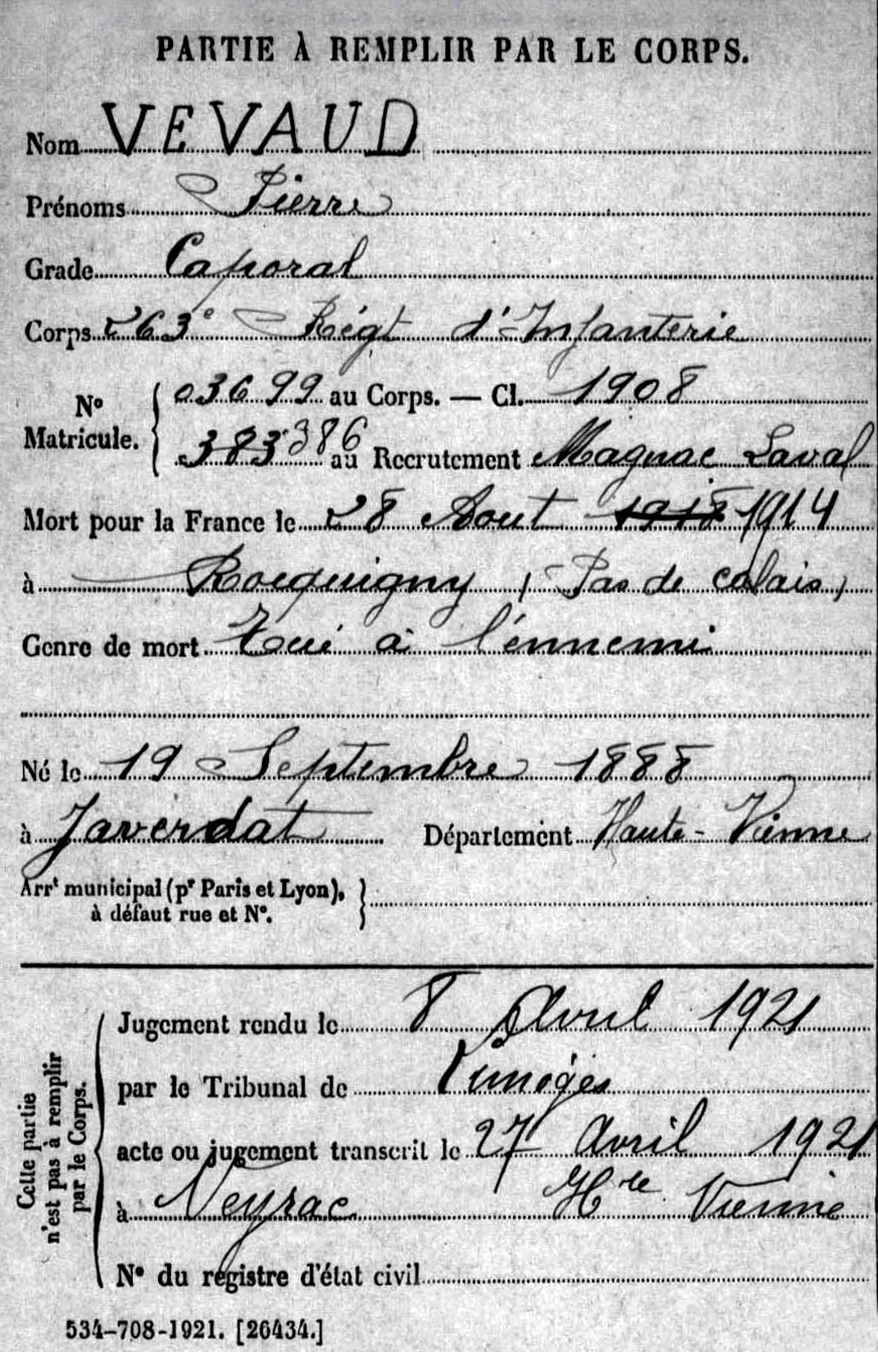 PARTIE À REMPLIR PAR LE CORPS.
Nom VEVAUD
Prénoms Pierre
Grade Caporal
Corps 263e Régt d'Infanterie
No Matricule. 03699 au Corps. — Cl. 1908
383 386 au Recrutement Magnac Laval
Mort pour la France le 28 Aout 1918 1914
à Rocquigny (Pas de calais)
Genre de mort Tué à l'énnemi
Né le 19 Septembre 1888
à Javerdat Département Haute-Vienne
Arrt municipal (pr Paris et Lyon),
à défaut rue et No.
Cette partie n'est pas à remplir par le Corps.
Jugement rendu le 8 Avril 1921
par le Tribunal de Limoges
acte ou jugement transcrit le 27 Avril 1921
à Veyrac Hte Vienne
No du registre d'état civil
534-708-1921. [26434.]